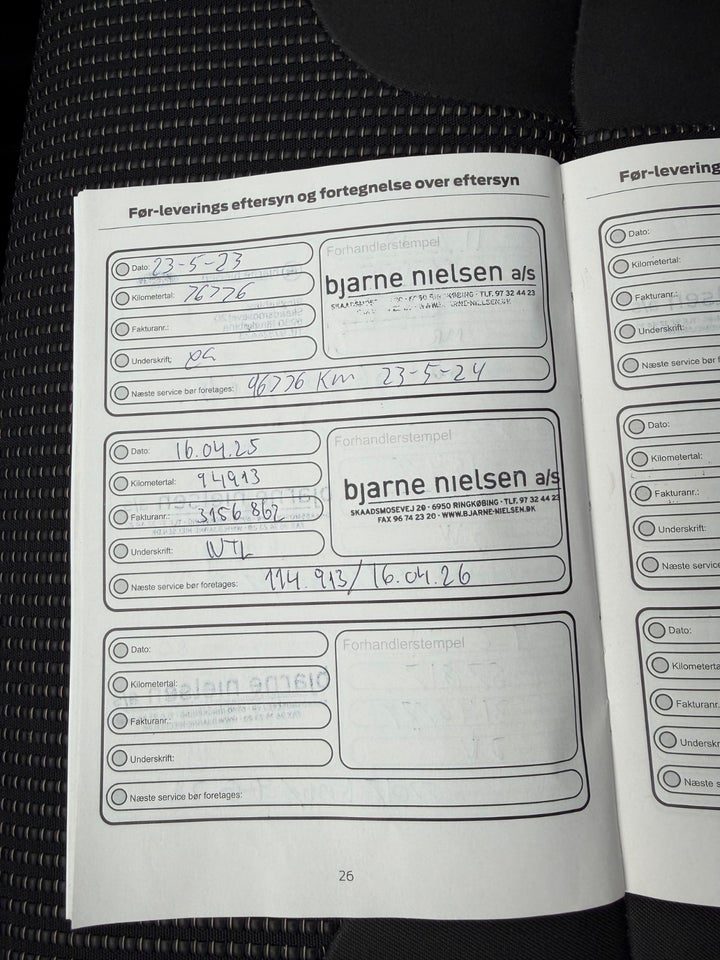 Før-leverings eftersyn og fortegnelse over eftersyn
Dato: 23-5-23
Kilometertal: 76776
Fakturanr.:
Underskrift:
Forhandlerstempel
bjarne nielsen a/s
RINGKØBING · TLF. 97 32 44 23
Næste service bør foretages: 96776 Km 23-5-24
Dato: 16.04.25
Kilometertal: 94913
Fakturanr.: 3156 862
Underskrift: WTL
Forhandlerstempel
bjarne nielsen a/s
SKAADSMOSEVEJ 20 · 6950 RINGKØBING · TLF. 97 32 44 23
FAX 96 74 23 20 · WWW.BJARNE-NIELSEN.DK
Næste service bør foretages: 114.913/16.04.26
Dato:
Kilometertal:
Fakturanr.:
Underskrift:
Forhandlerstempel
Næste service bør foretages:
26
Før-levering
Dato:
Kilometertal:
Fakturanr.:
Underskrift:
Næste service bør f
Dato:
Kilometertal:
Fakturanr.:
Underskrift:
Næste service
Dato:
Kilometerta
Fakturanr.
Underskr
Næste s